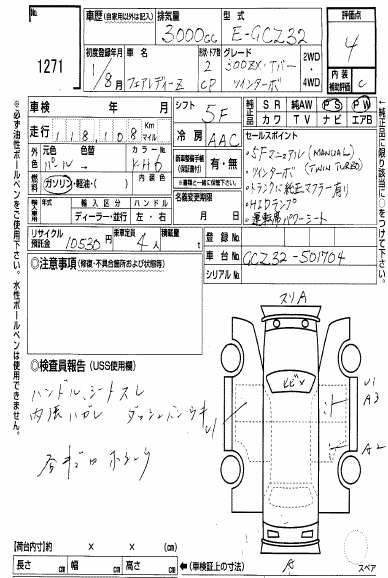 No.
1271
車歴 (自家用以外は記入)
排気量
型式
3000cc
E-GCZ32
初度登録年月
車名
形状・ドア数
グレード
1/8月
フェアレディーZ
2
CP
300ZX・Tバー
ツインターボ
2WD
4WD
評価点
4
内装
補助評価
C
車検 年 月
シフト
5F
純正品
SR 純AW PS PW
カワ TV ナビ エアB
走行 118,108 Km マイル
冷房
AAC
外色
元色
色替
カラーNo.
KH6
内装色
燃料
ガソリン・軽油・( )
新車整備手帳
(保証書付)
有・無
※書類と一緒に保管して下さい。
名義変更期限
月 日
輸入車
年式
輸入区分
ハンドル
ディーラー・並行
左・右
セールスポイント
・5Fマニュアル (MANUAL)
・ツインターボ (TWIN TURBO)
・トランクに純正マフラー有り
・HIDランプ
・運転席パワーシート
リサイクル預託金
10530円
乗車定員
4人
積載量
t
登録No.
車台No.
GCZ32-501704
シリアルNo.
◎注意事項 (修復・不具合箇所および状態等)
◎検査員報告 (USS使用欄)
ハンドル、シートスレ
内張ハガレ ダッシュバンウキ
スリA
U1
A3
A2
U1
【荷台内寸】約 × × (cm)
長さ cm 幅 cm 高さ cm
←(車検証上の寸法)
スペア
※必ず油性ボールペンをご使用下さい。水性ボールペンは使用できません。
※純正品に限り該当に○をつけて下さい。